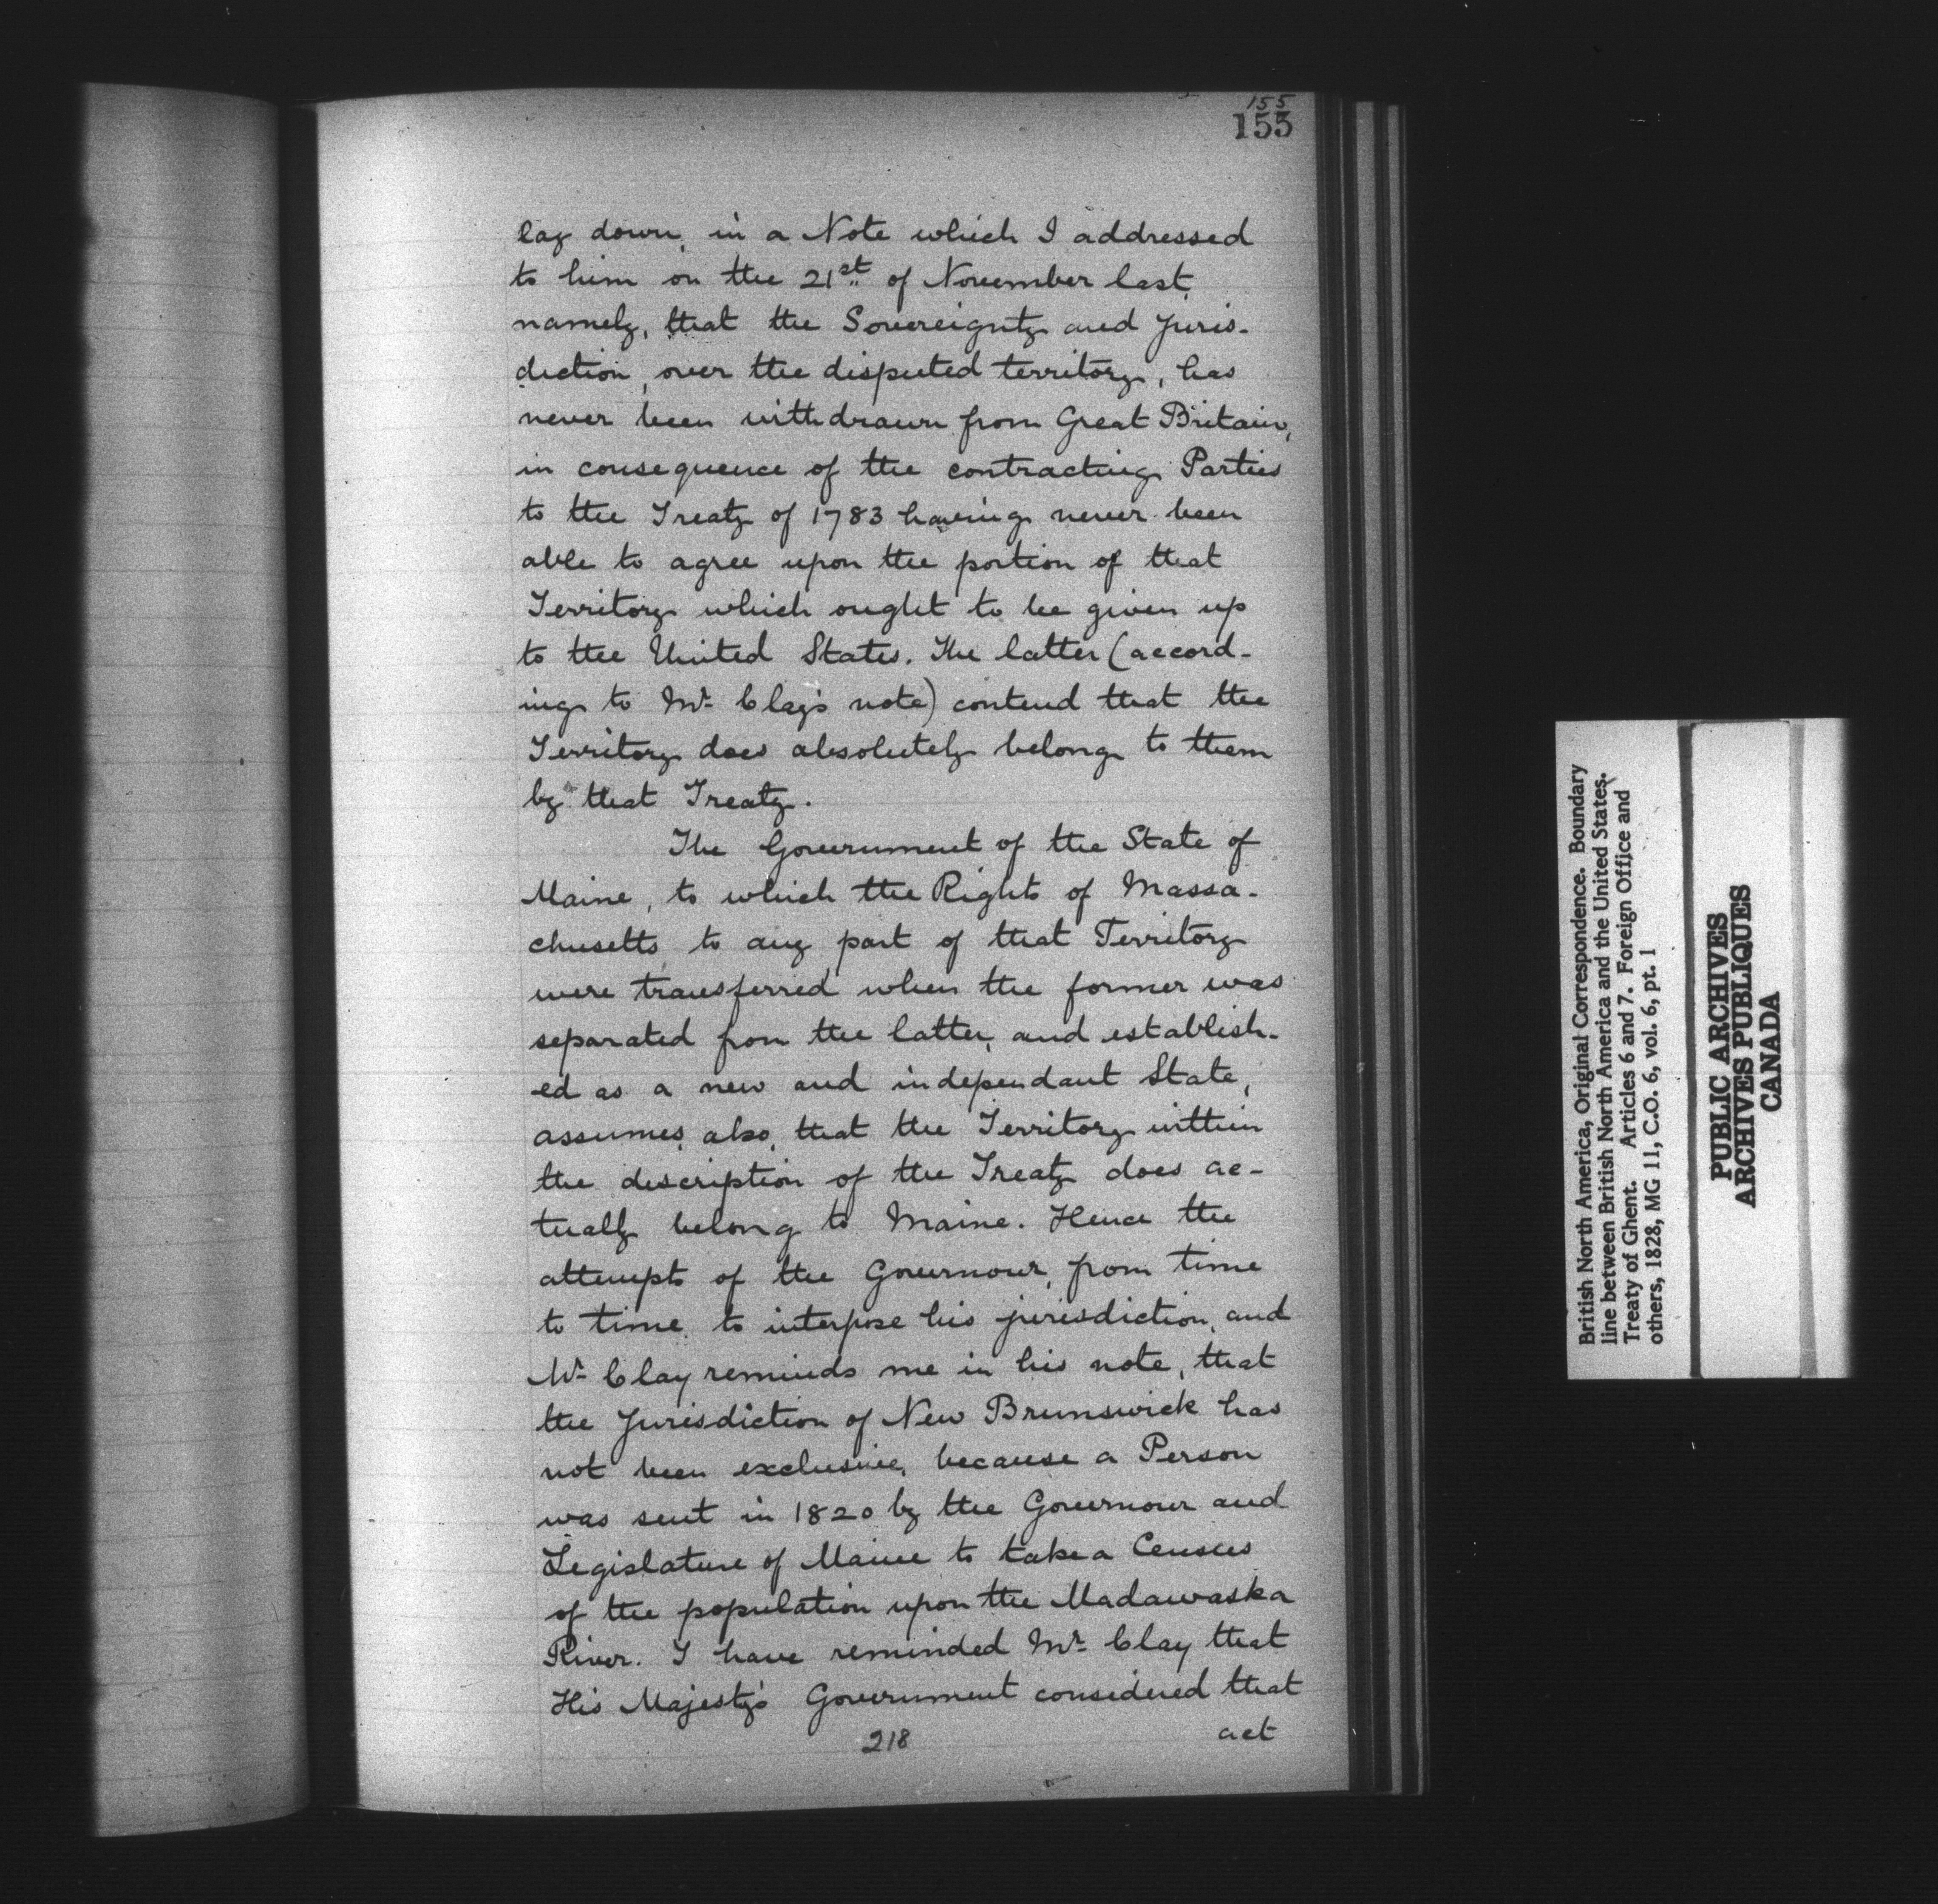 155
155
lay down, in a Note which I addressed
to him on the 21st of November last,
namely, that the Sovereignty and Juris-
diction, over the disputed territory, has
never been withdrawn from Great Britain,
in consequence of the contracting Parties
to the Treaty of 1783 having never been
able to agree upon the portion of that
Territory which ought to be given up
to the United States. The latter (accord-
ing to Mr. Clay's note) contend that the
Territory does absolutely belong to them
by that Treaty.
The Government of the State of
Maine, to which the Rights of Massa-
chusetts to any part of that Territory
were transferred when the former was
separated from the latter, and establish-
ed as a new and independant State,
assumes, also, that the Territory within
the description of the Treaty does ac-
tually belong to Maine. Hence the
attempts of the Governour, from time
to time, to interpose his jurisdiction, and
Mr. Clay reminds me in his note, that
the Jurisdiction of New Brunswick has
not been exclusive, because a Person
was sent in 1820 by the Governour and
Legislature of Maine to take a Census
of the population upon the Madawaska
River. I have reminded Mr. Clay that
His Majesty's Government considered that
218 act
British North America, Original Correspondence. Boundary
line between British North America and the United States.
Treaty of Ghent. Articles 6 and 7. Foreign Office and
others, 1828, MG 11, C.O. 6, vol. 6, pt. 1
PUBLIC ARCHIVES
ARCHIVES PUBLIQUES
CANADA